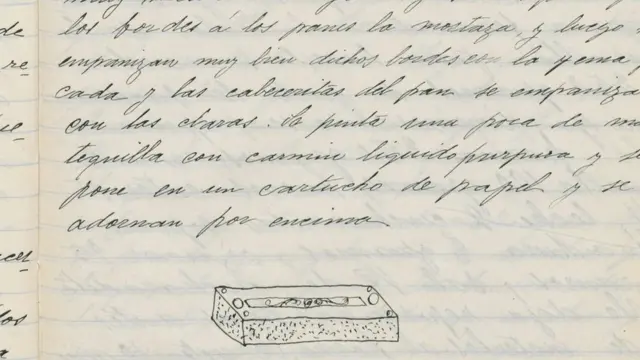 de
los bordes á los panes la mostaza, y luego
re
empanizan muy bien dichos bordes con la yema
cada y las cabeceritas del pan se empaniza
con las claras. Se pinta una poca de ma
se
tequilla con carmin liquido purpura y s
pone en un cartucho de papel y se
adornan por encima
ces
los
a